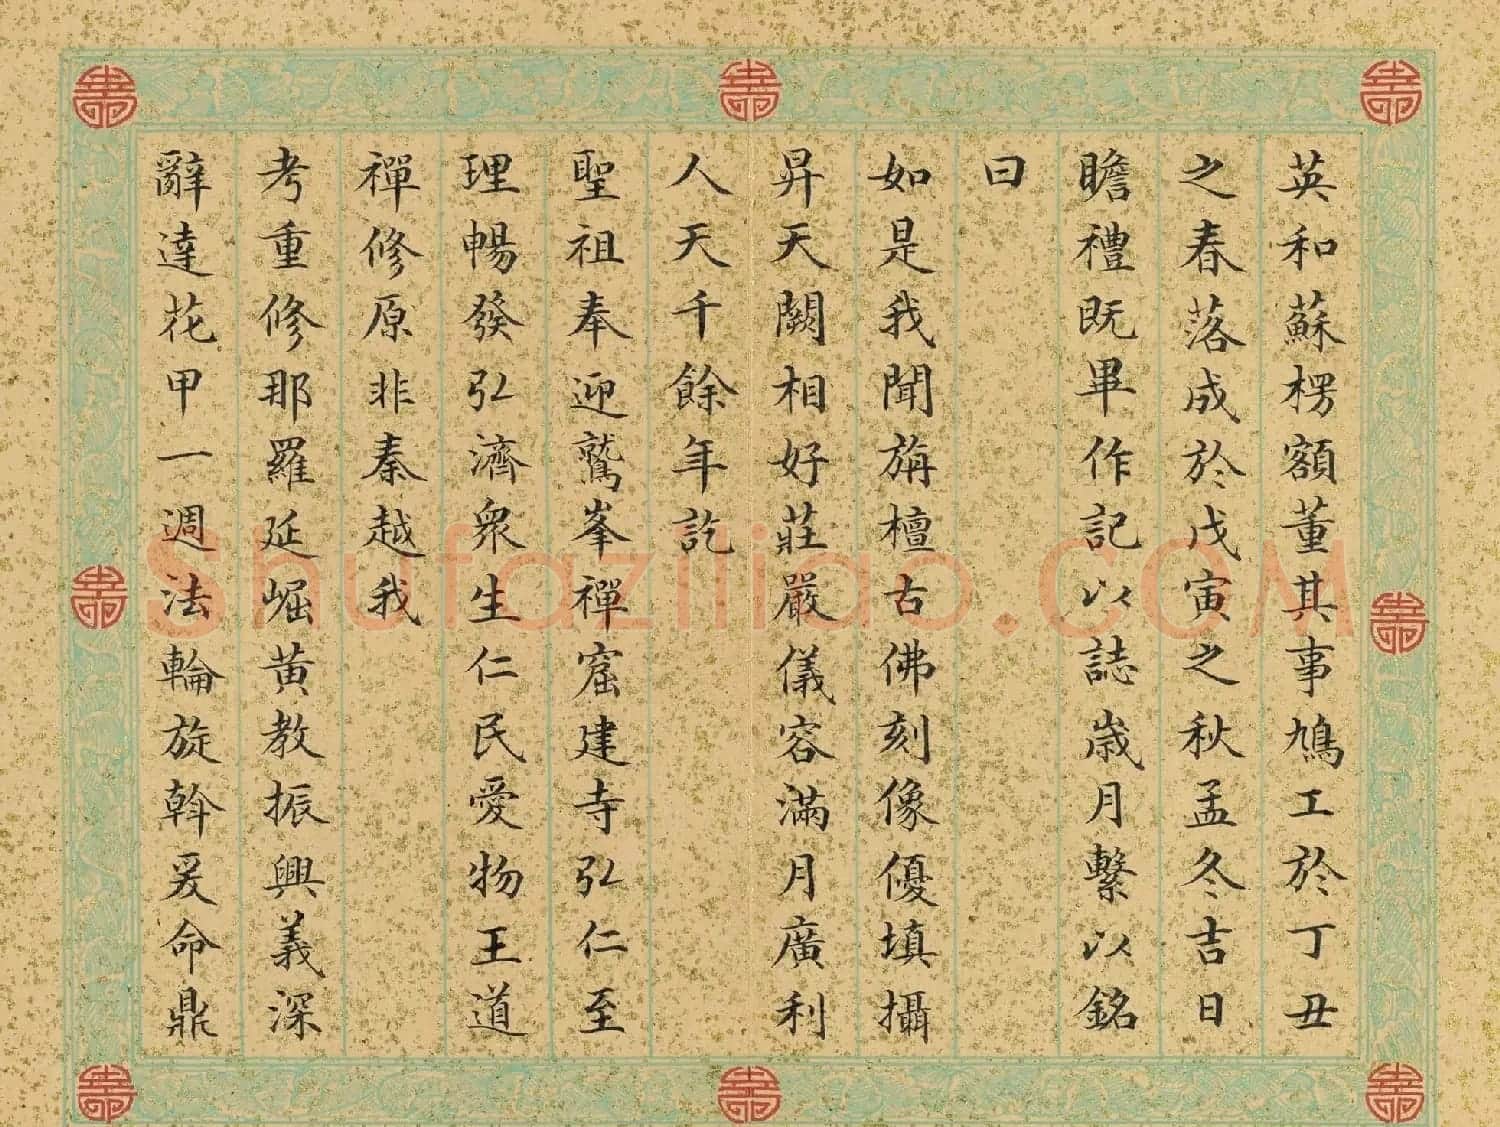 英和蘇楞額董其事鳩工於丁丑
之春落成於戊寅之秋孟冬吉日
瞻禮既畢作記以誌歲月繫以銘
曰
如是我聞旃檀古佛刻像優填攝
昇天闕相好莊嚴儀容滿月廣利
人天千餘年訖
聖祖奉迎鷲峯禪窟建寺弘仁至
理暢發弘濟衆生仁民愛物王道
禪修原非秦越我
考重修那羅延崛黃教振興義深
辭達花甲一週法輪旋斡爰命鼎
Shufaziliao.COM